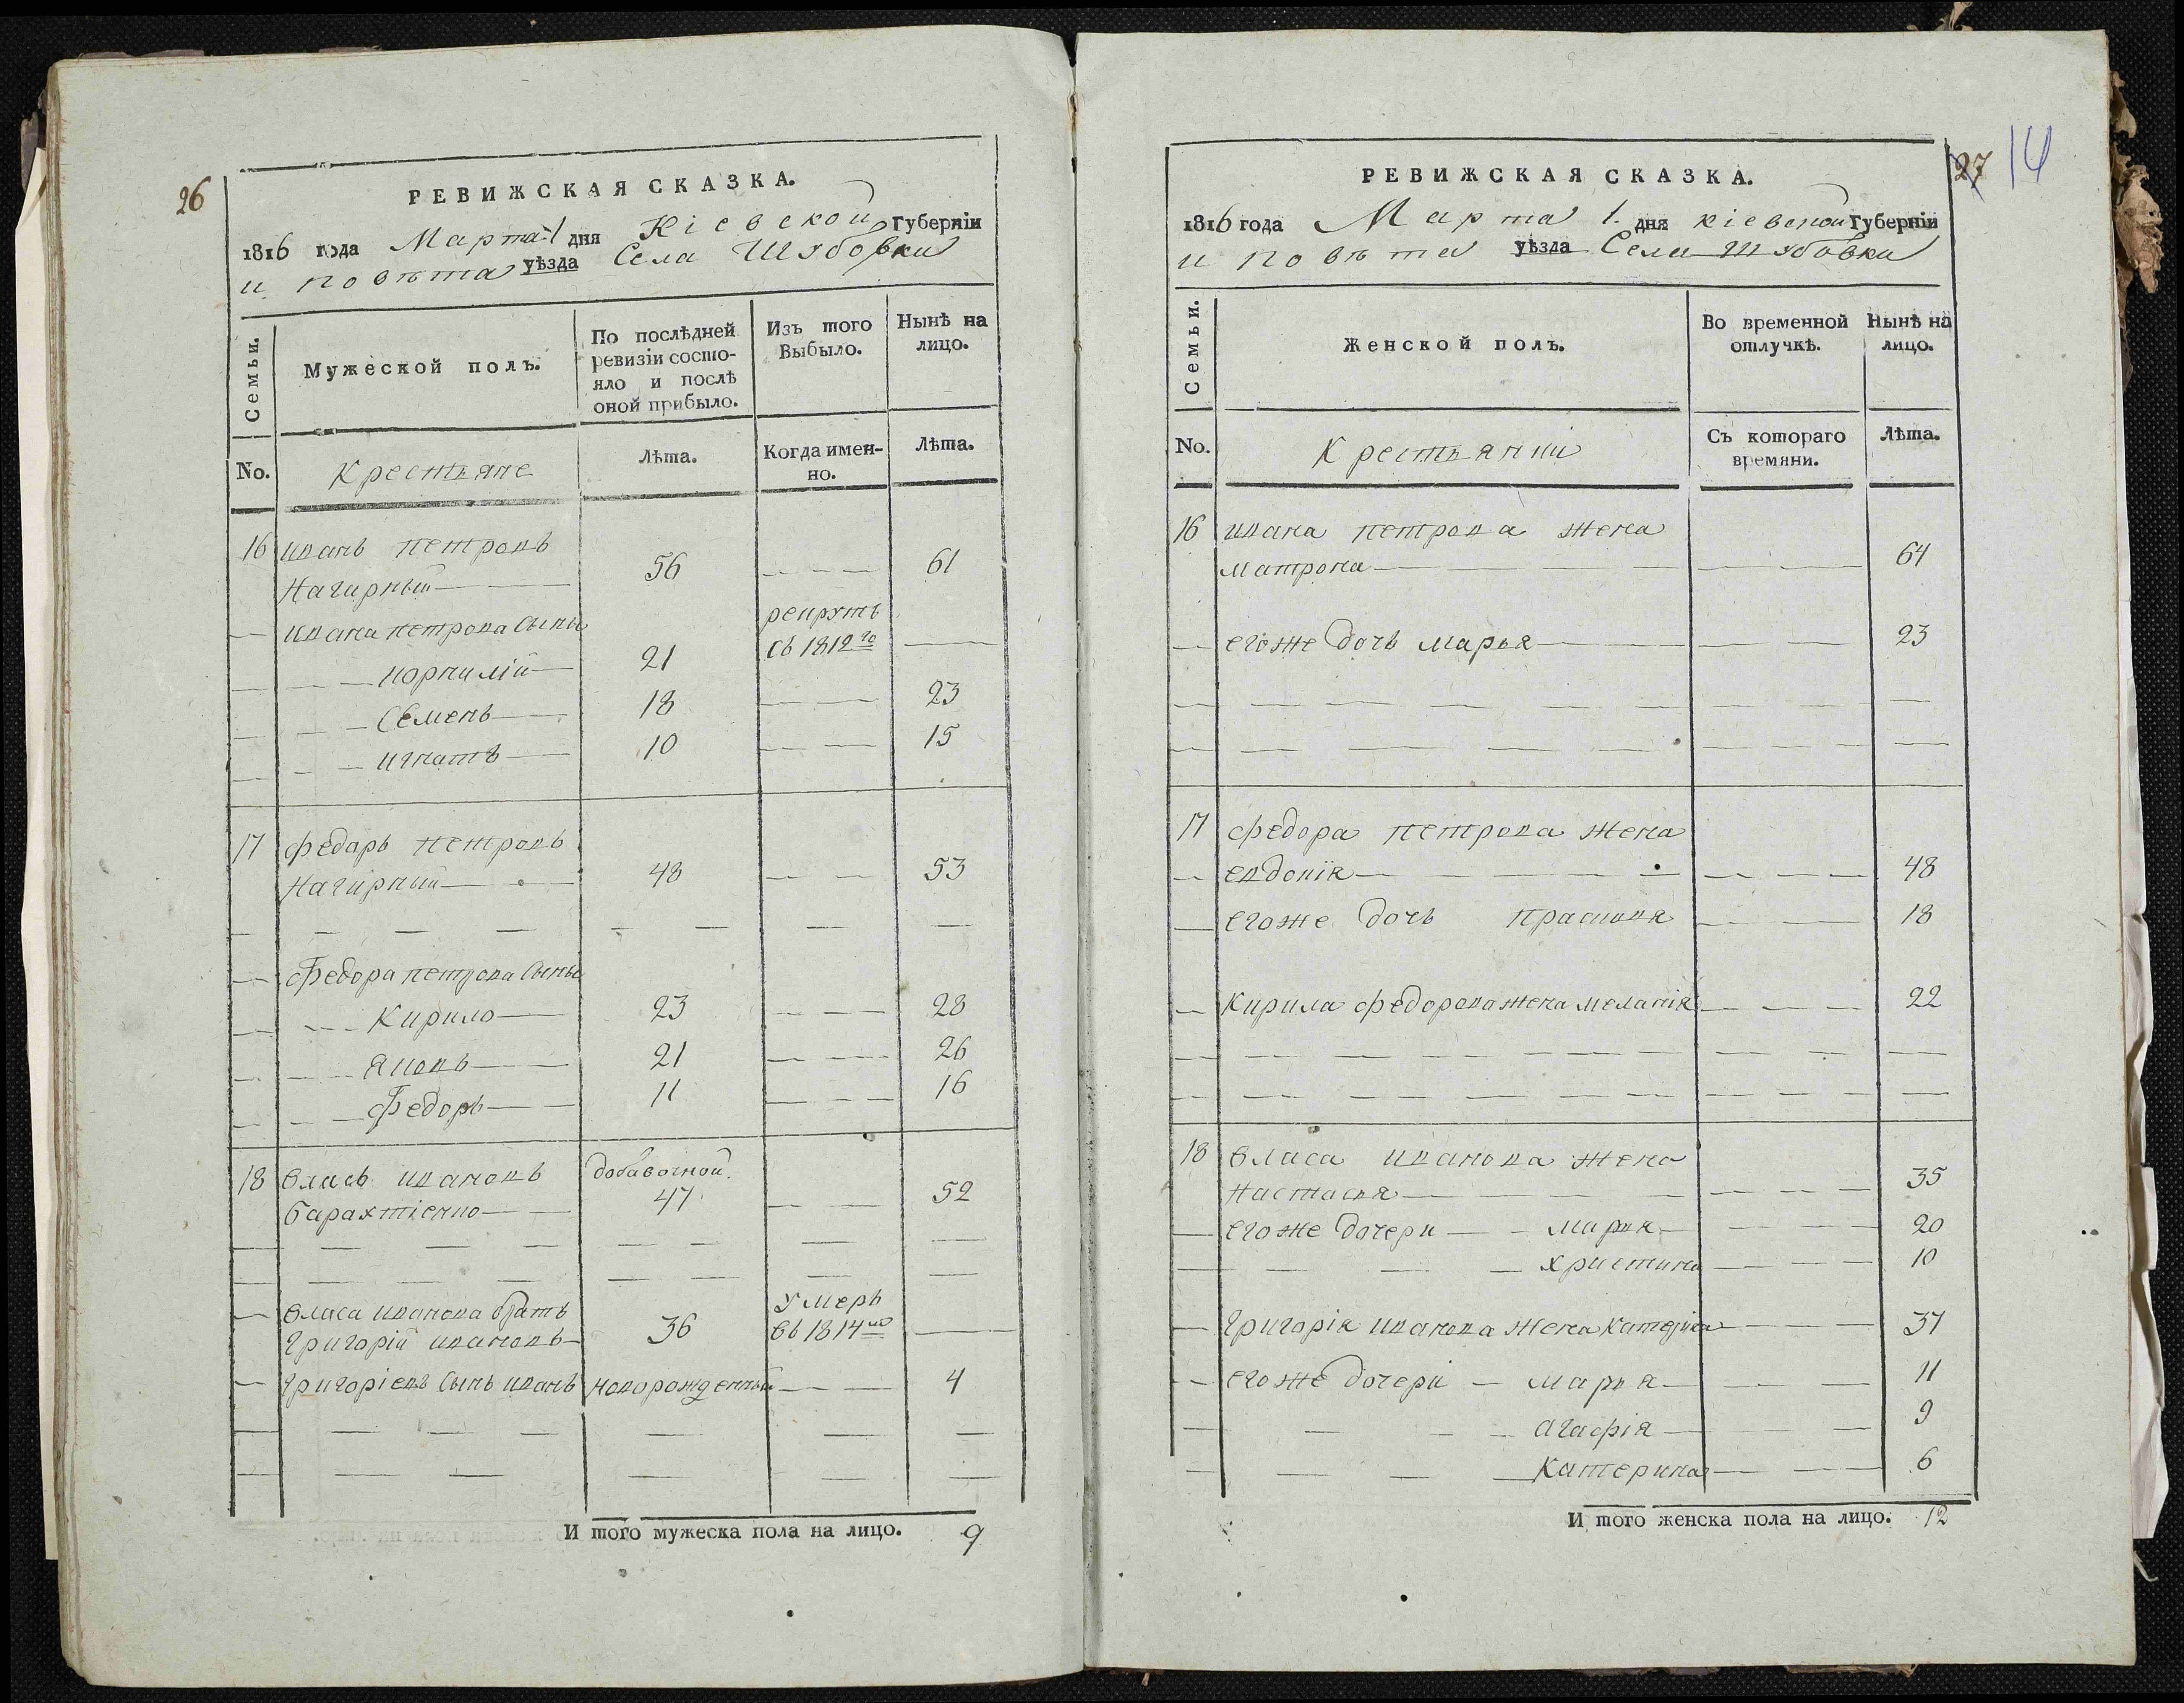 26
РЕВИЖСКАЯ СКАЗКА.
1816 года Марта 1 дня Кіевской Губерніи
и повѣта уѣзда Села Шубовки
Семьи.
Мужеской полъ.
По послѣдней ревизіи состо-
яло и послѣ
оной прибыло.
Изъ того
Выбыло.
Нынѣ на
лицо.
No.
Крестьяне
Лѣта.
Когда имен-
но.
Лѣта.
16 иванъ петровъ
Нагирный — 56 — — — 61
— ивана петрова сыны рекрутъ
— — — корнилій — 21 съ 1812го —
— — — семенъ — 18 — — 23
— — — игнатъ — 10 — — — 15
17 федаръ петровъ
Нагирный — 48 — — 53
— федора петрова сыны
— — — Кирило — 23 — — — 28
— — — яковъ — 21 — — — 26
— — — федоръ — 11 — — — 16
18 власъ ивановъ добавочной
барахтіенко — 47 — — 52
— власа иванова братъ умеръ
григорій ивановъ — 36 въ 1814мъ —
— григоріевъ сынъ иванъ новорожденный — — — 4
И того мужеска пола на лицо. 9
27 14
РЕВИЖСКАЯ СКАЗКА.
1816 года Марта 1. дня кіевской Губерніи
и повѣта уѣзда Села Шубовки
Семьи.
Женской полъ.
Во временной
отлучкѣ.
Нынѣ на
лицо.
No.
Крестьянки
Съ котораго
времяни.
Лѣта.
16 ивана петрова жена
матрона — — — 64
— егоже дочь марья — — — 23
17 федора петрова жена
— евдокія — — — 48
— егоже дочь прасковя — — 18
— Кирила федорова жена меланія — — — 22
18 власа иванова жена
настасья — — — 35
— егоже дочери — — марья — — — 20
— — — — христина — — — 10
— григорія иванова жена катерина — — — 37
— егоже дочери — марья — — — 11
— — — — агафія — — — 9
— — — — катерина — — — 6
И того женска пола на лицо. 12